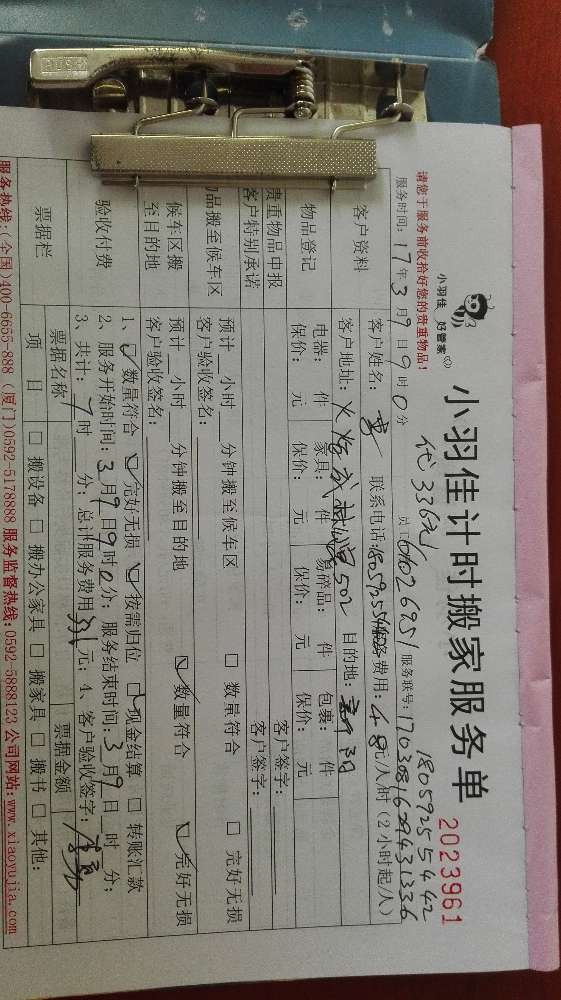 小羽佳 好管家
小羽佳计时搬家服务单
2023961
请您于服务前收拾好您的贵重物品!
代336元
18059255442
服务时间: 17年3月9日9时0分
服务联号:
客户资料
客户姓名: 联系电话: 服务费用: 48元/人/时 (2小时起/人)
客户地址: 502 目的地:
物品登记
电器: 件 家具: 件 易碎品: 件 包裹: 件
保价: 元 保价: 元 保价: 元 保价: 元
贵重物品申报 客户签字:
客户特别承诺 客户签字:
物品搬至候车区
预计 小时 分钟搬至候车区 □数量符合 □完好无损
客户验收签名:
候车区搬至目的地
预计 小时 分钟搬至目的地 ☑数量符合 ☑完好无损
客户验收签名:
验收付费
1、☑数量符合 ☑完好无损 ☑按需归位 ☑现金结算 □转账汇款
2、服务开始时间: 3月9日9时0分; 服务结束时间: 3月9日 时 分;
3、共计: 7时 分; 总计服务费用336元; 4、客户验收签字:
票据栏
票据名称 票据金额
项目 □搬设备 □搬办公家具 □搬家具 □搬书 □其他:
服务热线:(全国)400-6655-888 (厦门)0592-5178888 服务监督热线:0592-5888123 公司网站:www.xiaoyujia.com